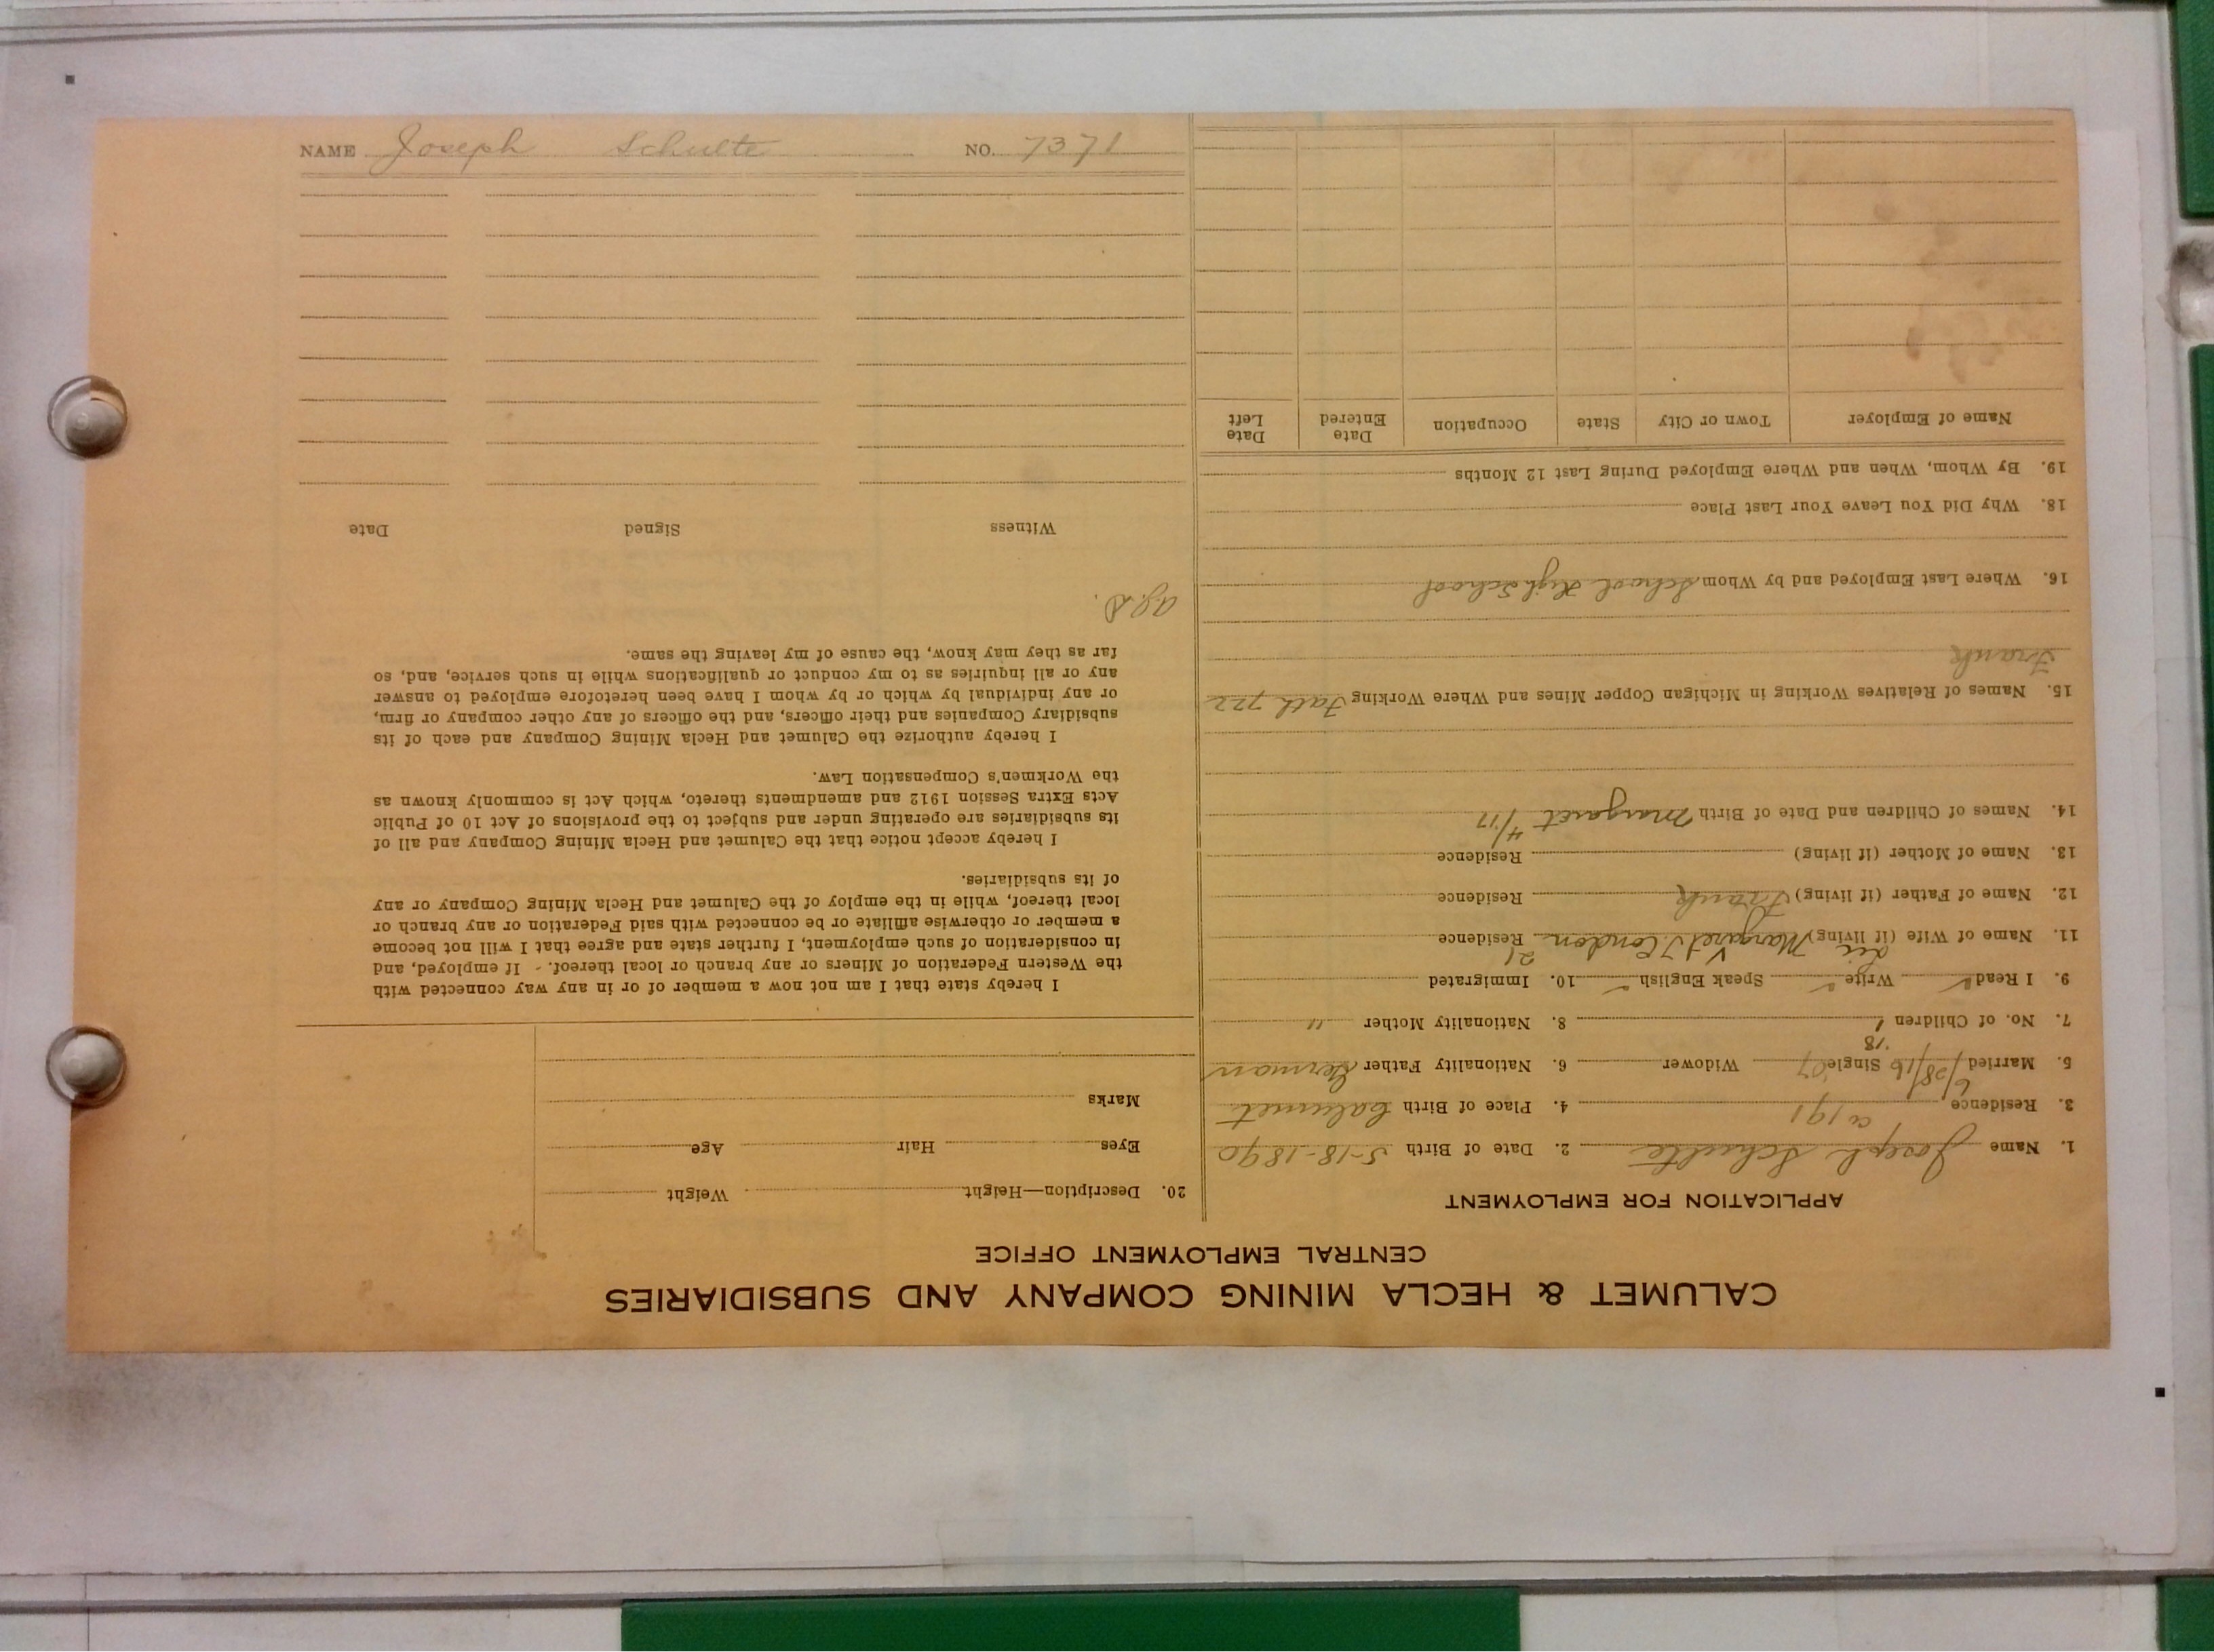 CALUMET & HECLA MINING COMPANY AND SUBSIDIARIES
CENTRAL EMPLOYMENT OFFICE
APPLICATION FOR EMPLOYMENT
1. Name Joseph Schulte 2. Date of Birth 5-18-1890
3. Residence 4. Place of Birth Calumet
5. Married 6/28/16 Single '07 Widower 6. Nationality Father German
18
7. No. of Children 1 8. Nationality Mother "
9. I Read ✓ Write ✓ Speak English ✓ 10. Immigrated
11. Name of Wife (if living) Margaret Residence
12. Name of Father (if living) Frank Residence
13. Name of Mother (if living) Residence
14. Names of Children and Date of Birth Margaret 4/17
15. Names of Relatives Working in Michigan Copper Mines and Where Working Fath 722
Frank
16. Where Last Employed and by Whom School High School
18. Why Did You Leave Your Last Place
19. By Whom, When and Where Employed During Last 12 Months
Name of Employer Town or City State Occupation Date Entered Date Left
20. Description—Height Weight
Eyes Hair Age
Marks
I hereby state that I am not now a member of or in any way connected with
the Western Federation of Miners or any branch or local thereof. If employed, and
in consideration of such employment, I further state and agree that I will not become
a member or otherwise affiliate or be connected with said Federation or any branch or
local thereof, while in the employ of the Calumet and Hecla Mining Company or any
of its subsidiaries.
I hereby accept notice that the Calumet and Hecla Mining Company and all of
its subsidiaries are operating under and subject to the provisions of Act 10 of Public
Acts Extra Session 1912 and amendments thereto, which Act is commonly known as
the Workmen's Compensation Law.
I hereby authorize the Calumet and Hecla Mining Company and each of its
subsidiary Companies and their officers, and the officers of any other company or firm,
or any individual by which or by whom I have been heretofore employed to answer
any or all inquiries as to my conduct or qualifications while in such service, and, so
far as they may know, the cause of my leaving the same.
Witness Signed Date
NAME Joseph Schulte NO. 7371